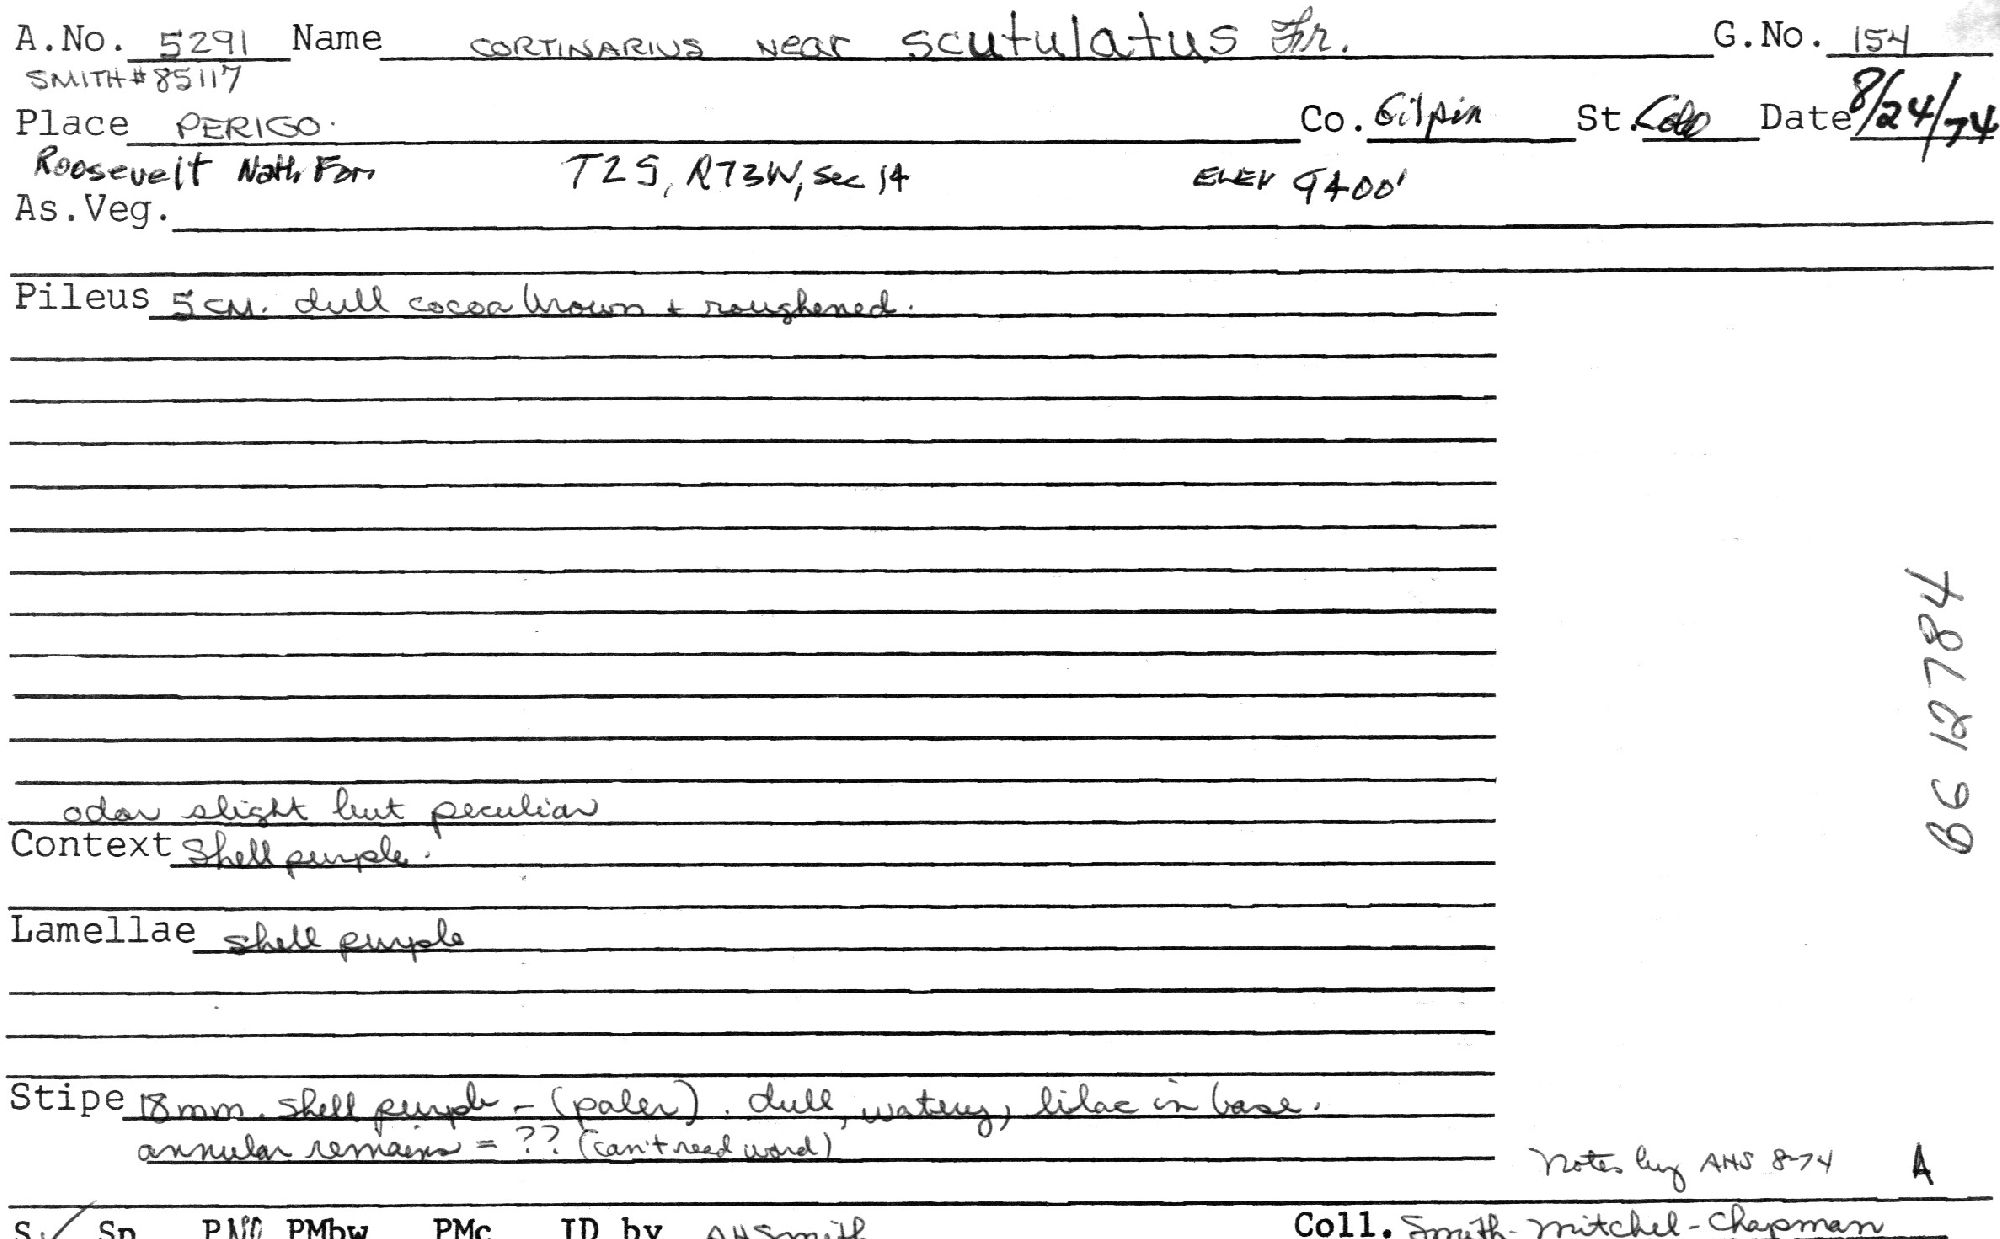 A.No. 5291 Name CORTINARIUS Near scutulatus Fr. G.No. 154
SMITH # 85117
Place PERIGO. Co. Gilpin St. Colo Date 8/24/74
Roosevelt Natl. For. T2S, R73W, Sec 14 ELEV 9400'
As.Veg.
Pileus 5 cm. dull cocoa brown + roughened.
odor slight but peculiar
Context Shell purple.
Lamellae shell purple
Stipe 18mm. shell purple - (paler). dull, watery, lilac in base.
annular remains = ?? (can't read word)
Notes by AHS 8-74 A
Sp. PMbw PMc ID by AHSmith Coll. Smith-Mitchel-Chapman
12784